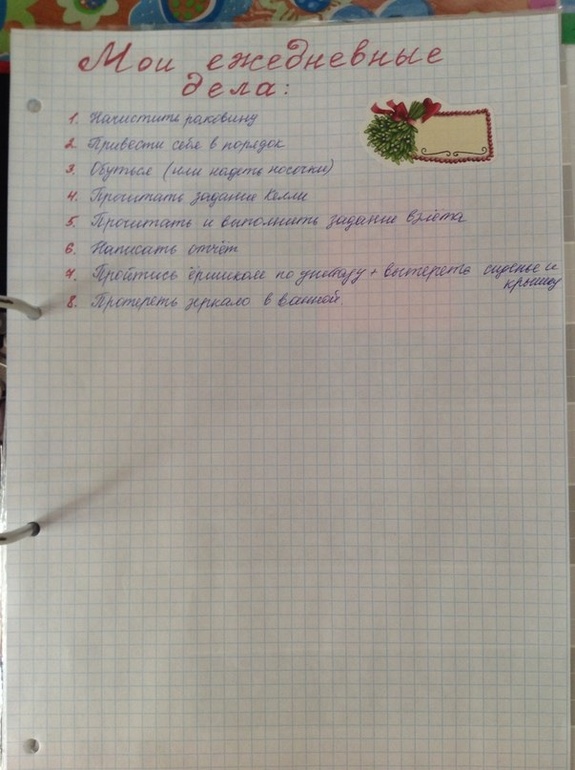 Мои ежедневные
дела:
1. Начистить раковину
2. Привести себя в порядок
3. Обуться (или надеть носочки)
4. Прочитать задание Келли
5. Прочитать и выполнить задание взлёта
6. Написать отчёт
7. Пройтись ёршиком по унитазу + вытереть сиденье и
крышку
8. Протереть зеркало в ванной